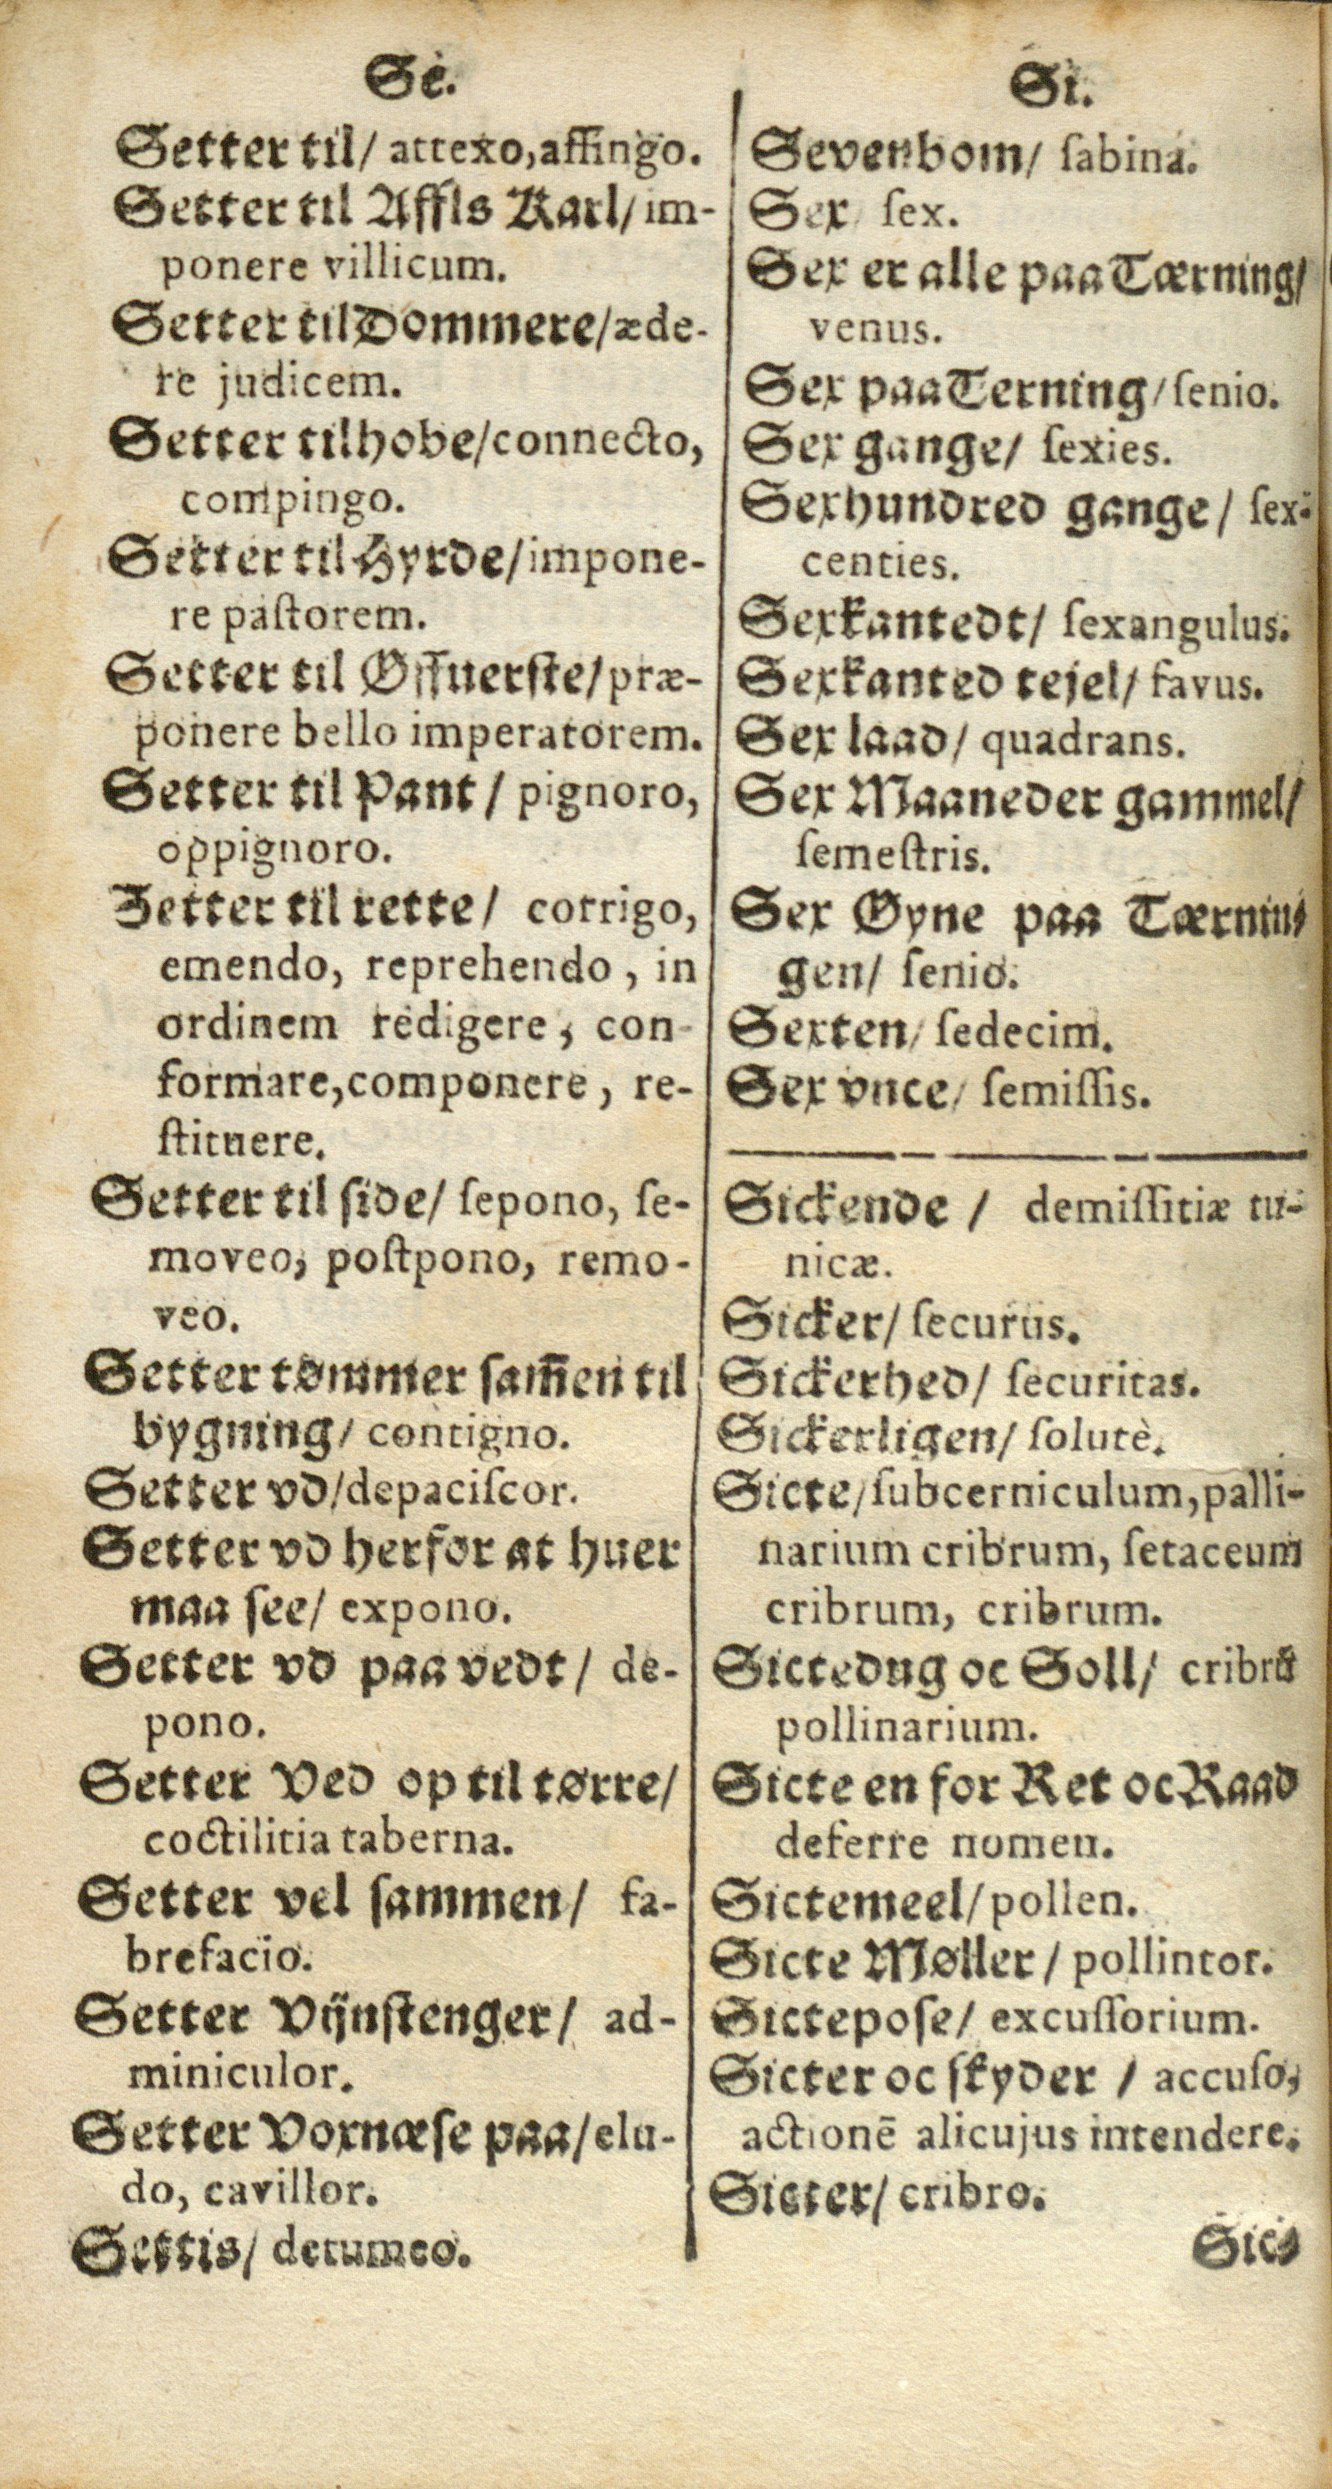 Se.
Setter til/ attexo, affingo.
Setter til Affls Karl/ im-
ponere villicum.
Setter til Dommere/ æde-
re judicem.
Setter tilhobe/ connecto,
compingo.
Setter til Hyrde/ impone-
re pastorem.
Setter til Øffuerste/ præ-
ponere bello imperatorem.
Setter til Pant / pignoro,
oppignoro.
Setter til rette/ corrigo,
emendo, reprehendo, in
ordinem redigere, con-
formare, componere, re-
stituere.
Setter til side/ ſepono, ſe-
moveo, poſtpono, remo-
veo.
Setter tømmer sam̄en til
bygning/ contigno.
Setter vd/ depaciſcor.
Setter vd herfor at huer
maa see/ expono.
Setter vd paa vedt/ de-
pono.
Setter Ved op til tørre/
coctilitia taberna.
Setter vel sammen/ fa-
brefacio.
Setter Vijnstenger/ ad-
miniculor.
Setter Voxnæse paa/ elu-
do, cavillor.
Settis/ detumeo.
Si.
Sevenbom/ ſabina.
Sex/ ſex.
Sex er alle paa Tærning/
venus.
Sex paa Terning/ ſenio.
Sex gange/ ſexies.
Sexhundred gange/ ſex-
centies.
Sexkantedt/ ſexangulus.
Sexkanted tejel/ favus.
Sex laad/ quadrans.
Sex Maaneder gammel/
ſemeſtris.
Sex Øyne paa Tærnin-
gen/ ſenio.
Sexten/ ſedecim.
Sex vnce/ ſemiſſis.
Sickende / demiſſitiæ tu-
nicæ.
Sicker/ ſecurus.
Sickerhed/ ſecuritas.
Sickerligen/ ſolutè.
Sicte/ ſubcerniculum, palli-
narium cribrum, ſetaceum
cribrum, cribrum.
Sictedug oc Soll/ cribrū
pollinarium.
Sicte en for Ret oc Raad
deferre nomen.
Sictemeel/ pollen.
Sicte Møller/ pollintor.
Sictepose/ excuſſorium.
Sicter oc skyder / accuſo,
actionē alicujus intendere.
Sicter/ cribro.
Sic-